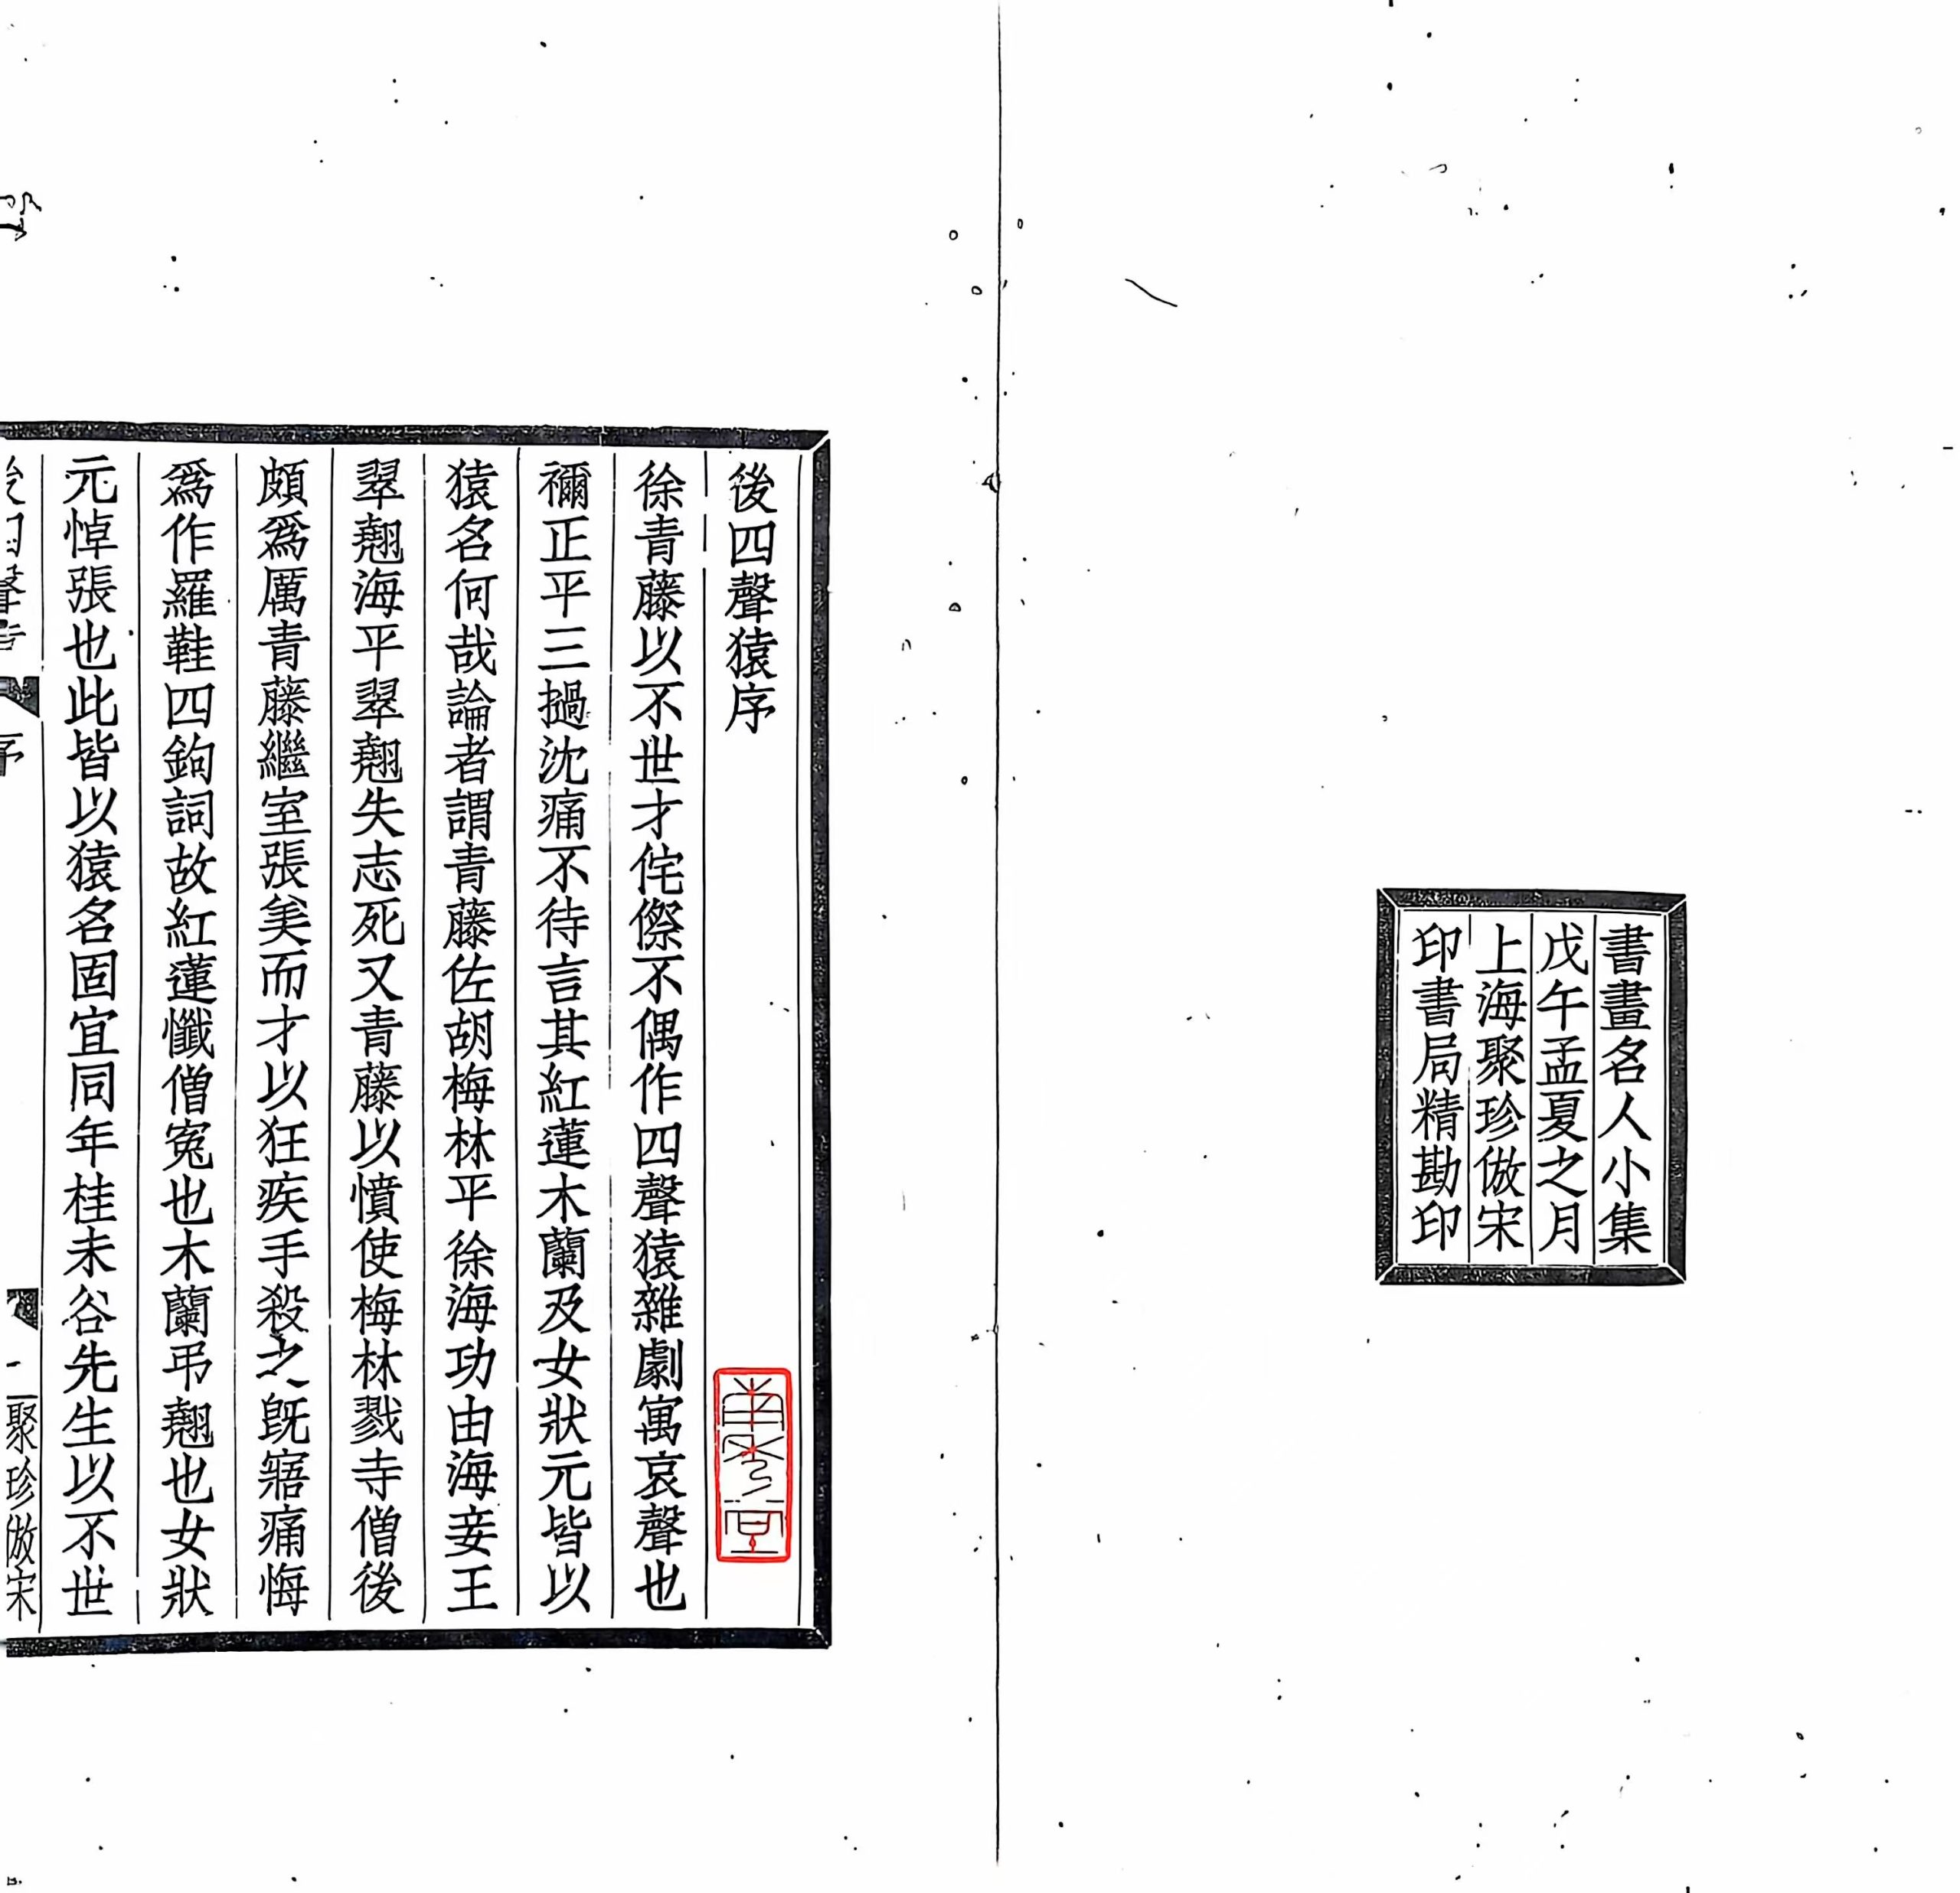 書畫名人小集
戊午孟夏之月
上海聚珍倣宋
印書局精勘印
後四聲猿序
徐青藤以不世才侘傺不偶作四聲猿雜劇寓哀聲也
禰正平三撾沈痛不待言其紅蓮木蘭及女狀元皆以
猿名何哉論者謂青藤佐胡梅林平徐海功由海妾王
翠翹海平翠翹失志死又青藤以憤使梅林戮寺僧後
頗爲厲青藤繼室張美而才以狂疾手殺之旣寤痛悔
爲作羅鞋四鉤詞故紅蓮懺僧寃也木蘭弔翹也女狀
元悼張也此皆以猿名固宜同年桂未谷先生以不世
序
一
聚珍倣宋